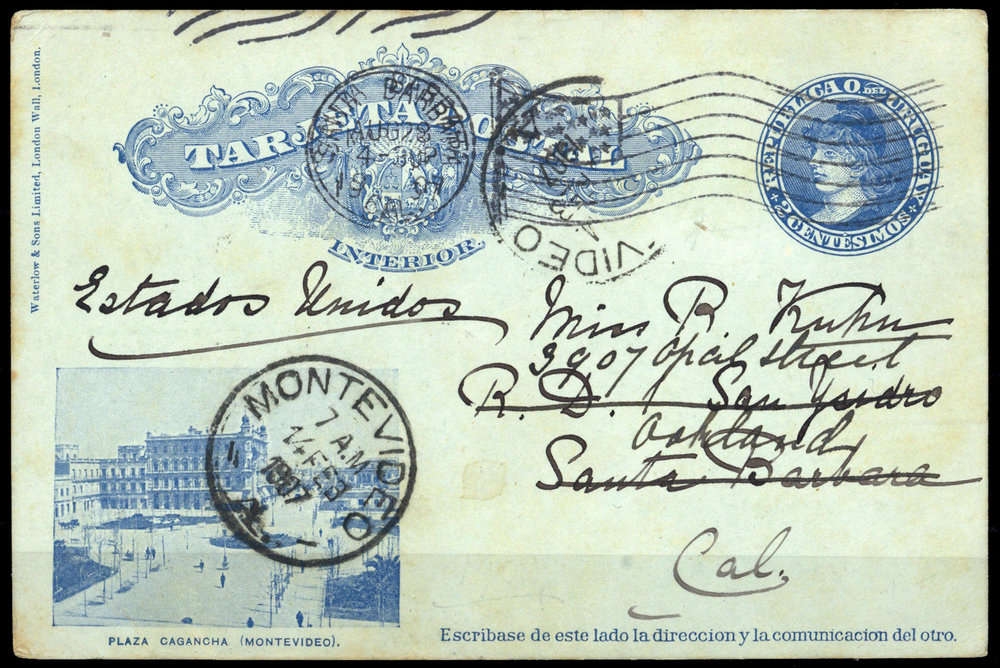 Waterlow & Sons Limited, London Wall, London.
TARJETA POSTAL
INTERIOR.
REPUBLICA O. DEL URUGUAY
2 CENTÉSIMOS
SANTA BARBARA
VIDEO
Estados Unidos
Miss R. Kuhn
3907 Opal street
R. D. San Ysidro
Oakland
Santa Barbara
Cal.
MONTEVIDEO
7 A.M.
14 FEB
1907
PLAZA CAGANCHA (MONTEVIDEO).
Escribase de este lado la direccion y la comunicacion del otro.